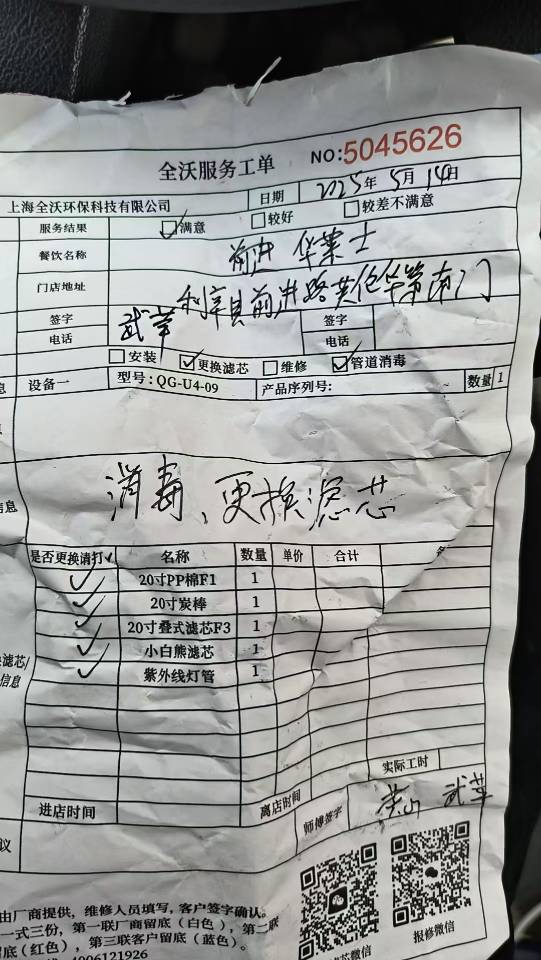 全沃服务工单 NO:5045626
上海全沃环保科技有限公司 日期 2025年5月14日
服务结果 ☑满意 □较好 □较差不满意
餐饮名称 前进 华莱士
门店地址 利辛县前进路英伦华第南门
签字 武苹 签字
电话 电话
□安装 ☑更换滤芯 □维修 ☑管道消毒
设备一 型号:QG-U4-09 产品序列号: 数量 1
消毒、更换滤芯
是否更换请打✓ 名称 数量 单价 合计
✓ 20寸PP棉F1 1
✓ 20寸炭棒 1
✓ 20寸叠式滤芯F3 1
✓ 小白熊滤芯 1
✓ 紫外线灯管 1
滤芯/
信息
实际工时
进店时间 离店时间 师傅签字 武苹
议
由厂商提供，维修人员填写，客户签字确认。
一式三份，第一联厂商留底（白色），第二联
底（红色），第三联客户留底（蓝色）。
4006121926
滤芯微信 报修微信